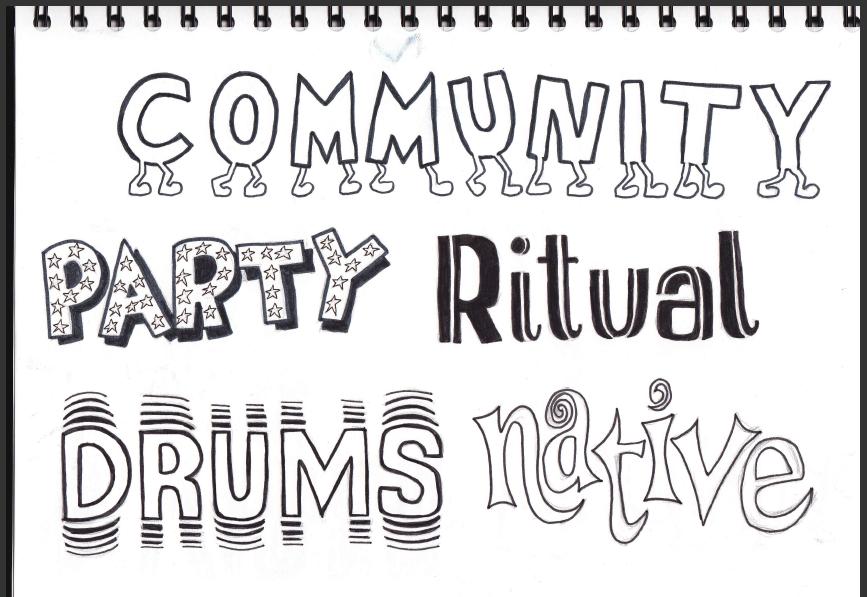 COMMUNITY
PARTY Ritual
DRUMS native